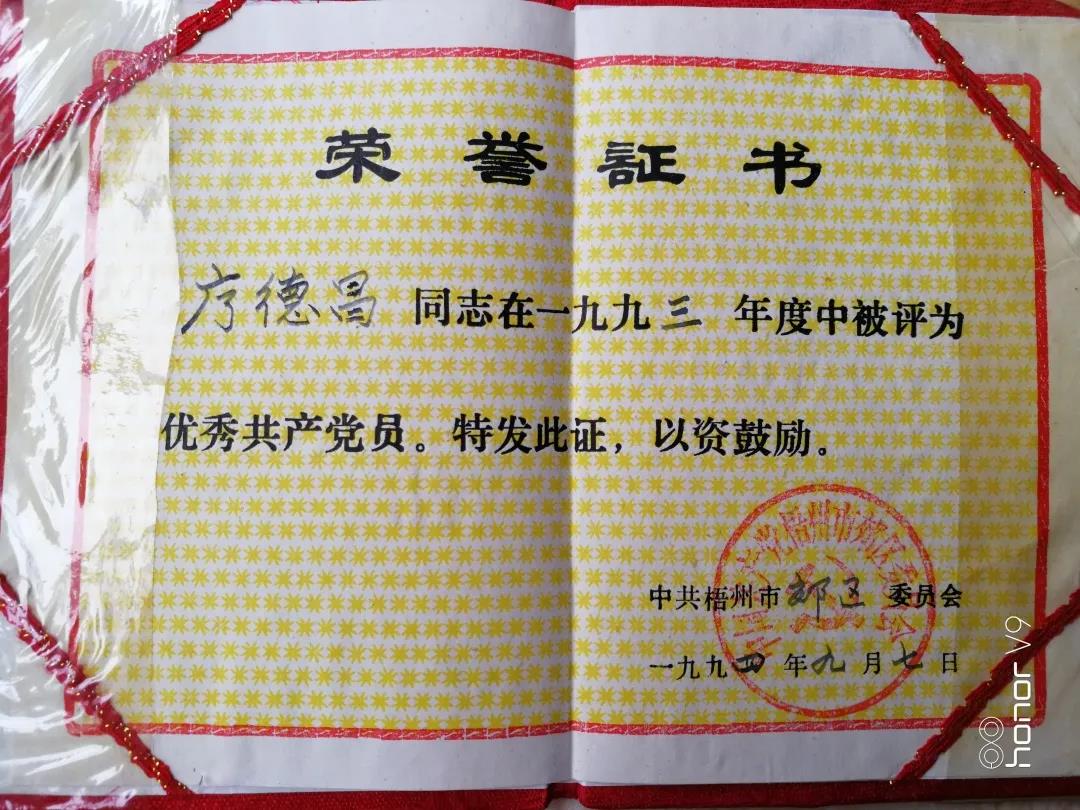 荣誉証书
德昌 同志在一九九三 年度中被评为
优秀共产党员。特发此证，以资鼓励。
中国共产党梧州市郊区委员会
中共梧州市郊区委员会
一九九四年九月七日
honor V9